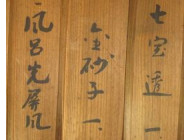 七宝透 一
金砂子 一
風呂先屏風